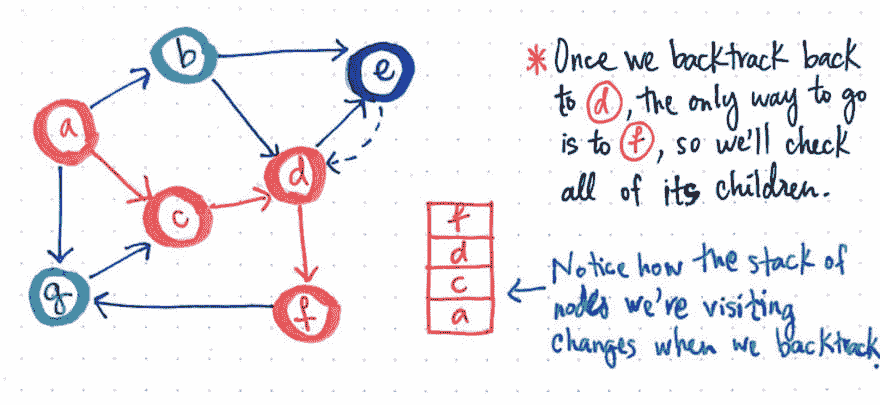 b
e
a
d
c
g
f
* Once we backtrack back
to d, the only way to go
is to f, so we'll check
all of its children.
f
d
c
a
Notice how the stack of
nodes we're visiting
changes when we backtrack.